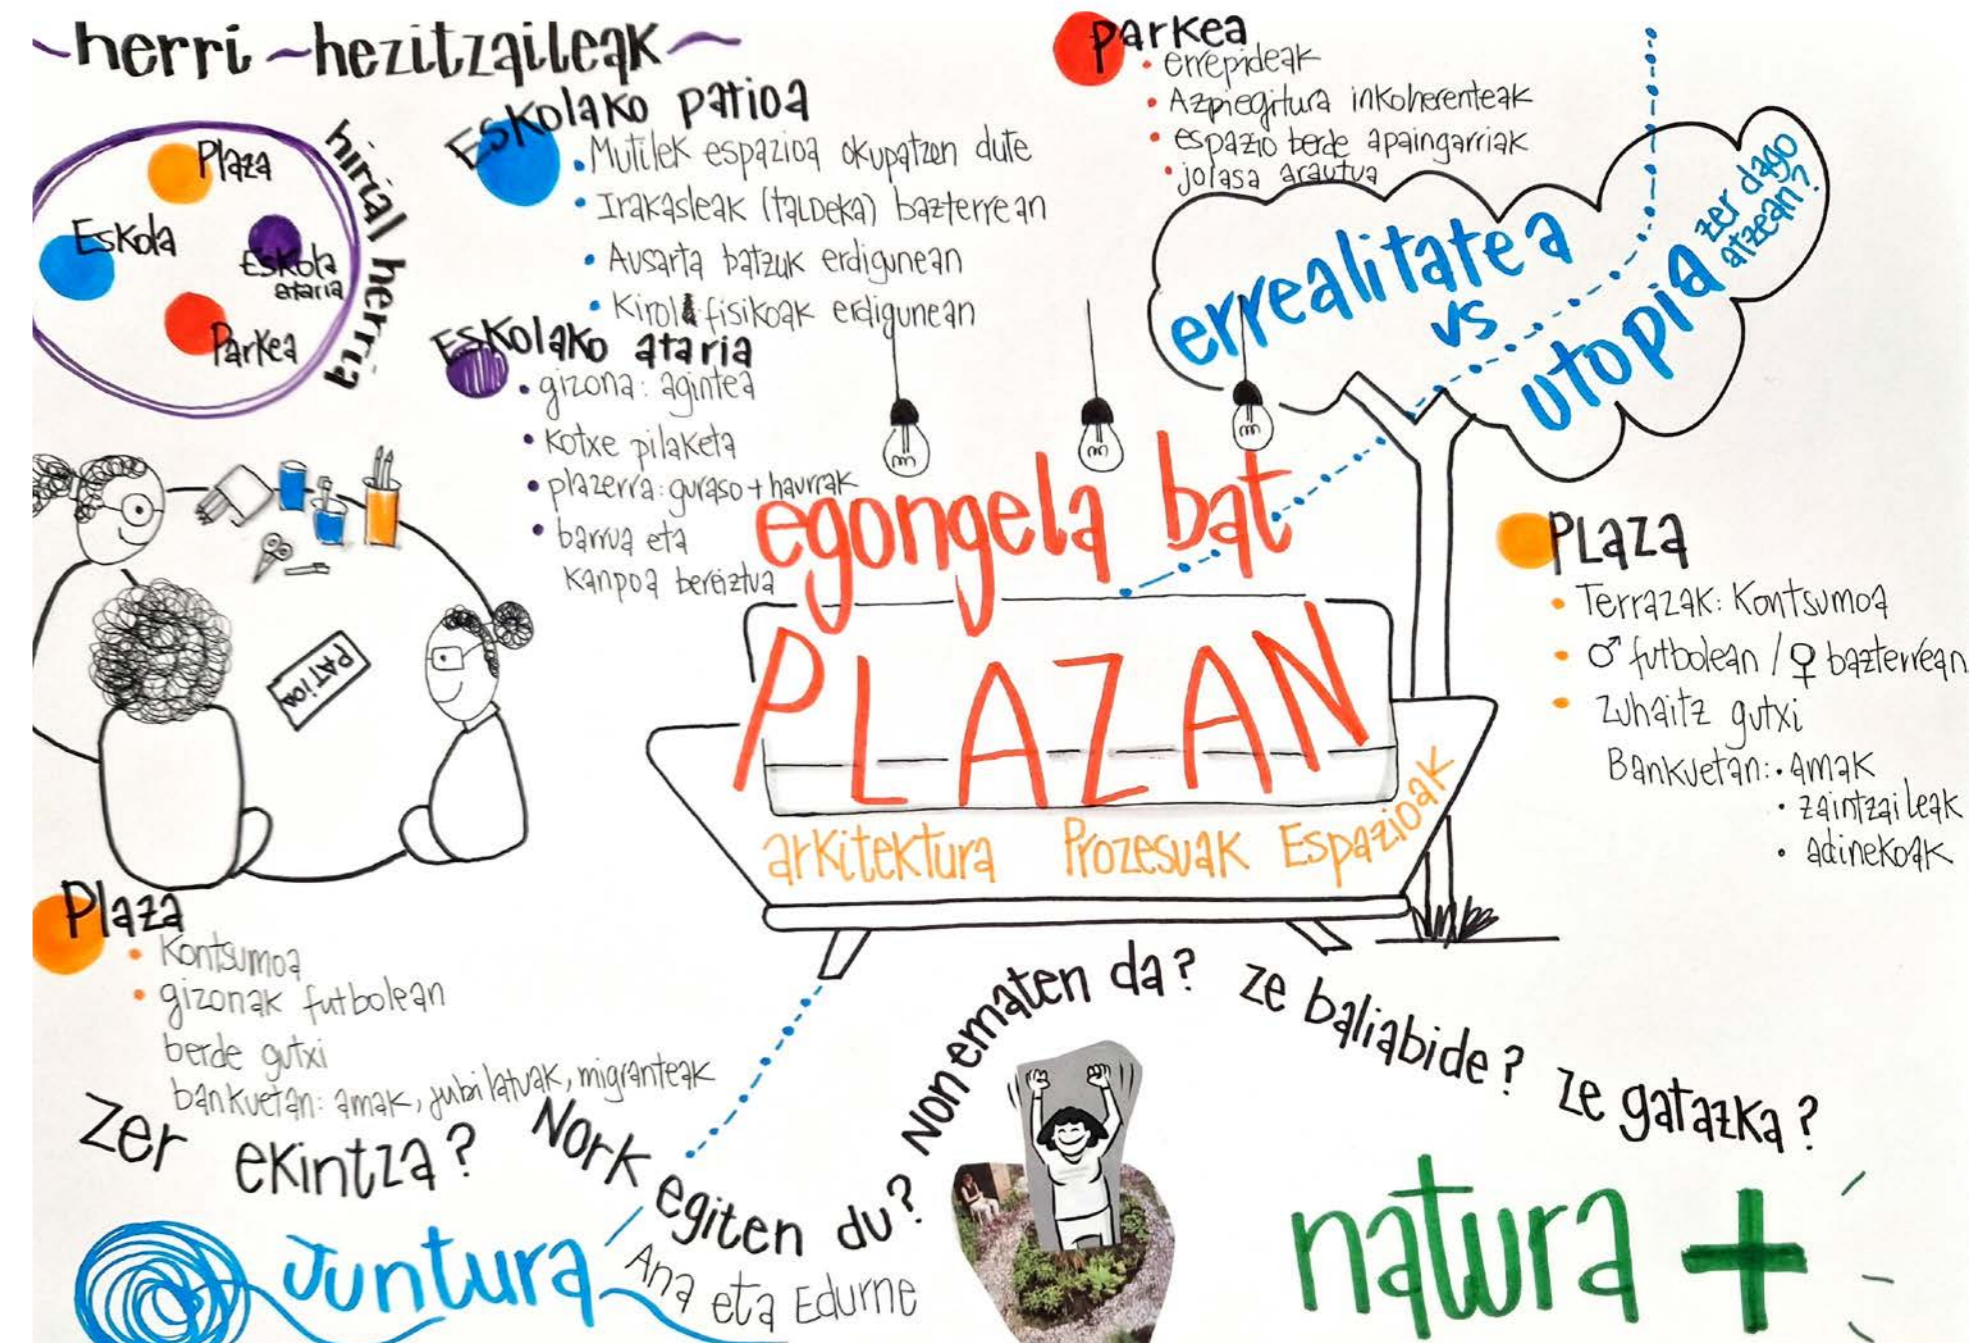 herri - hezitzaileak
Plaza
Eskola
Eskola
ataria
Parkea
hirial herria
Eskolako patioa
• Mutilek espazioa okupatzen dute
• Irakasleak (taldeka) bazterrean
• Ausarta batzuk erdigunean
• Kirol fisikoak erdigunean
Eskolako ataria
• gizona: agintea
• Kotxe pilaketa
• plazerra: guraso + haurrak
• barrua eta
Kanpoa bereiztua
Parkea
• errepideak
• Azpiegitura inkoherenteak
• espazio berde apaingarriak
• jolasa arautua
errealitatea
vs
utopia
zer dago
atzean?
egongela bat
PLAZAN
arkitektura Prozesuak Espazioak
PATIOA
PLAZA
• Terrazak: Kontsumoa
• ♂ futbolean / ♀ bazterrean
• Zuhaitz gutxi
Bankuetan: • amak
• zaintzaileak
• adinekoak
Plaza
• Kontsumoa
• gizonak futbolean
berde gutxi
bankuetan: amak, jubilatuak, migranteak
Zer ekintza?
Nork egiten du?
Non ematen da?
Ze baliabide?
Ze gatazka?
Juntura
Ana eta Edurne
natura +